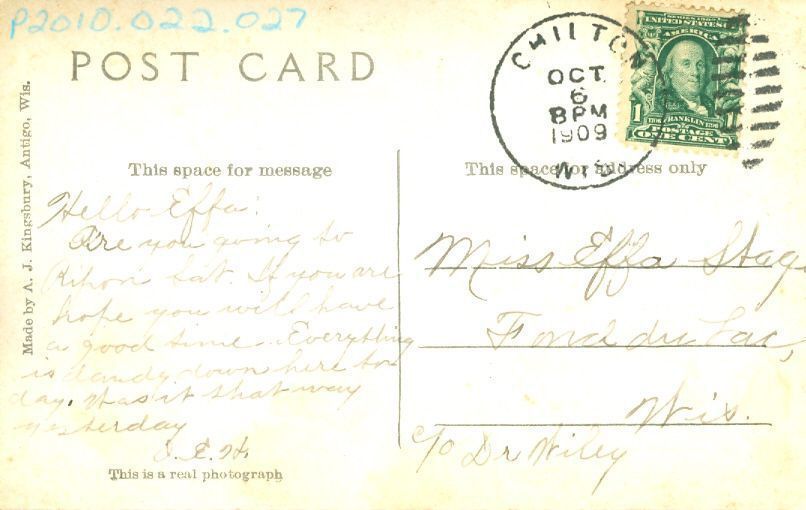 P2010.022.027
POST CARD
CHILTON
OCT.
6
8 PM
1909
WIS
SERIES 1902
UNITED STATES OF
AMERICA
1 FRANKLIN 1
POSTAGE
ONE CENT
Made by A. J. Kingsbury, Antigo, Wis.
This space for message
Hello Effa:
Are you going to
Ripon Sat. If you are
hope you will have
a good time. Everything
is dandy down here to-
day. Was it that way
yesterday
E. H.
This is a real photograph
This space for address only
Miss Effa Stag
Fond du Lac,
Wis.
c/o Dr Wiley